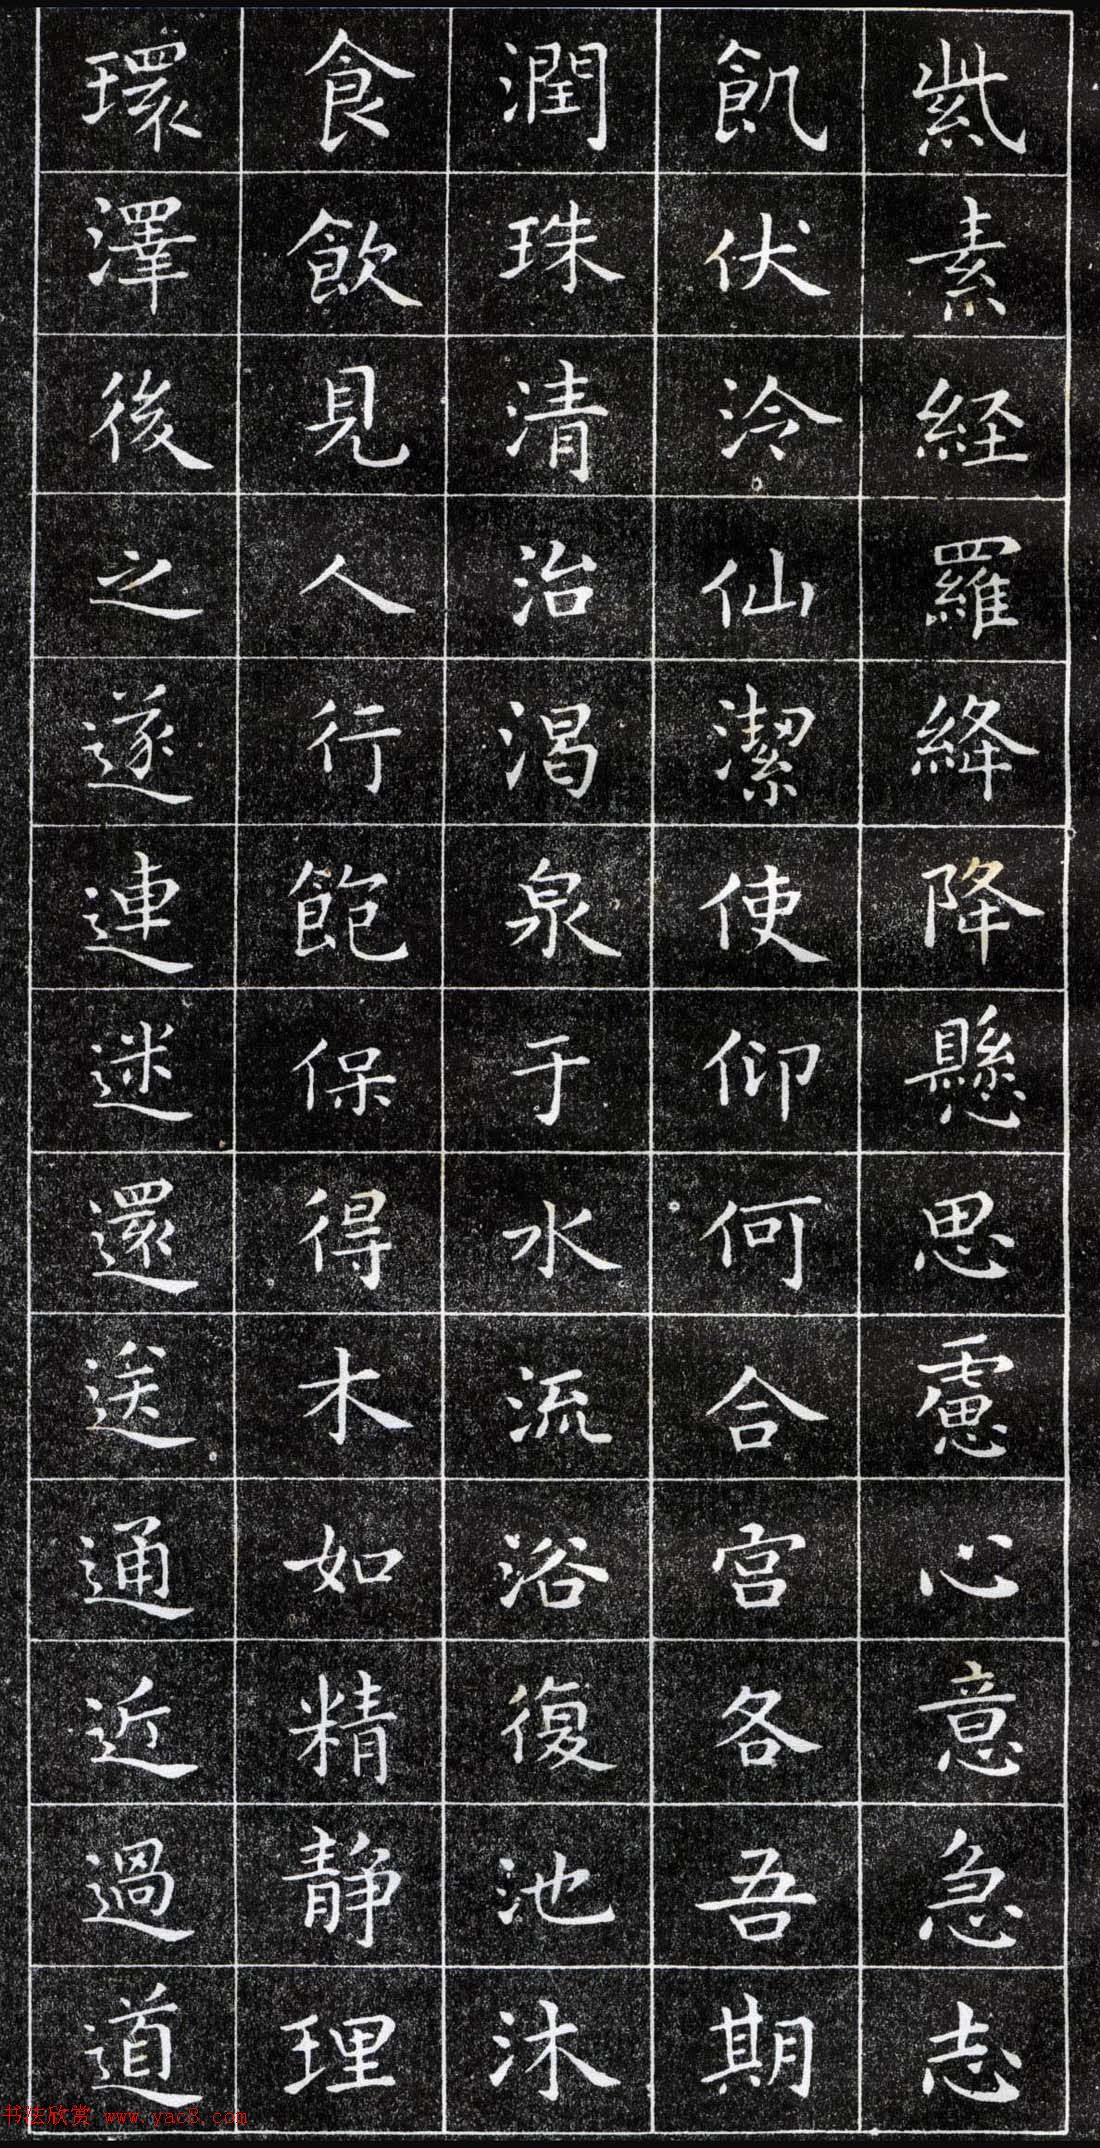 紫素経羅絳降懸思慮心意急志
飢伏泠仙潔使仰何合宫各吾期
潤珠清治渴泉于水流浴復池沐
食飲見人行飽保得木如精静理
環澤後之遂連迷還送通近過道
书法欣赏 www.yac8.com